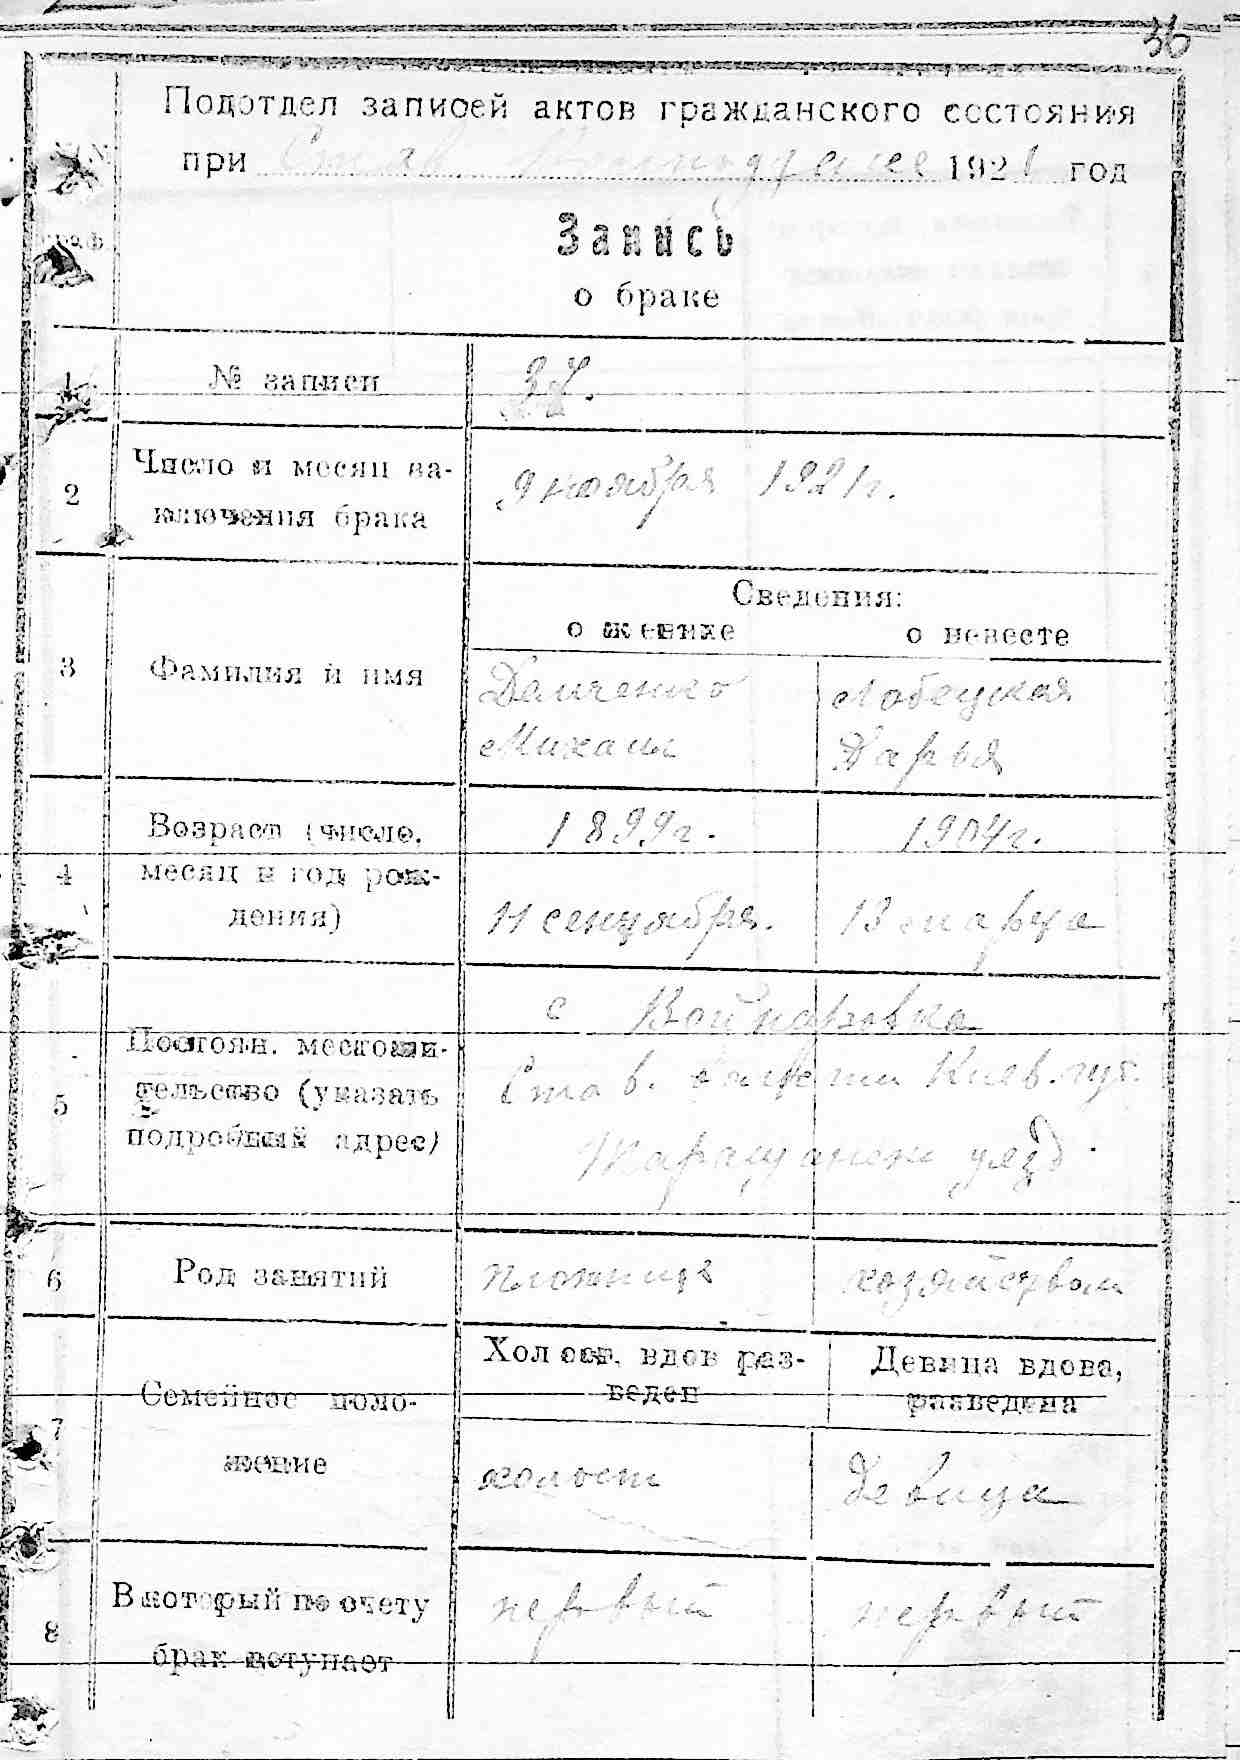 36
Подотдел записей актов гражданского состояния
при Став 1921 год
Граф.
Запись
о браке
1 № записи
2 Число и месяц за-
ключения брака 9 ноября 1921 г.
Сведения:
о женихе о невесте
3 Фамилия и имя
Демченко Лобецкая
Михаил Дарья
Возраст (число, 1899 г. 1904 г.
4 месяц и год рож-
дения) 11 сентября. 13 марта
с Войнаровка
Постоян. местожи-
5 тельство (указать Став. Киев. губ.
подробный адрес) Таращанск уезд.
6 Род занятий плотник хозяйством
Холост, вдов раз- Девица вдова,
веден разведена
7 Семейное поло-
жение холост девица
8 В который по счету первый первый
брак вступает